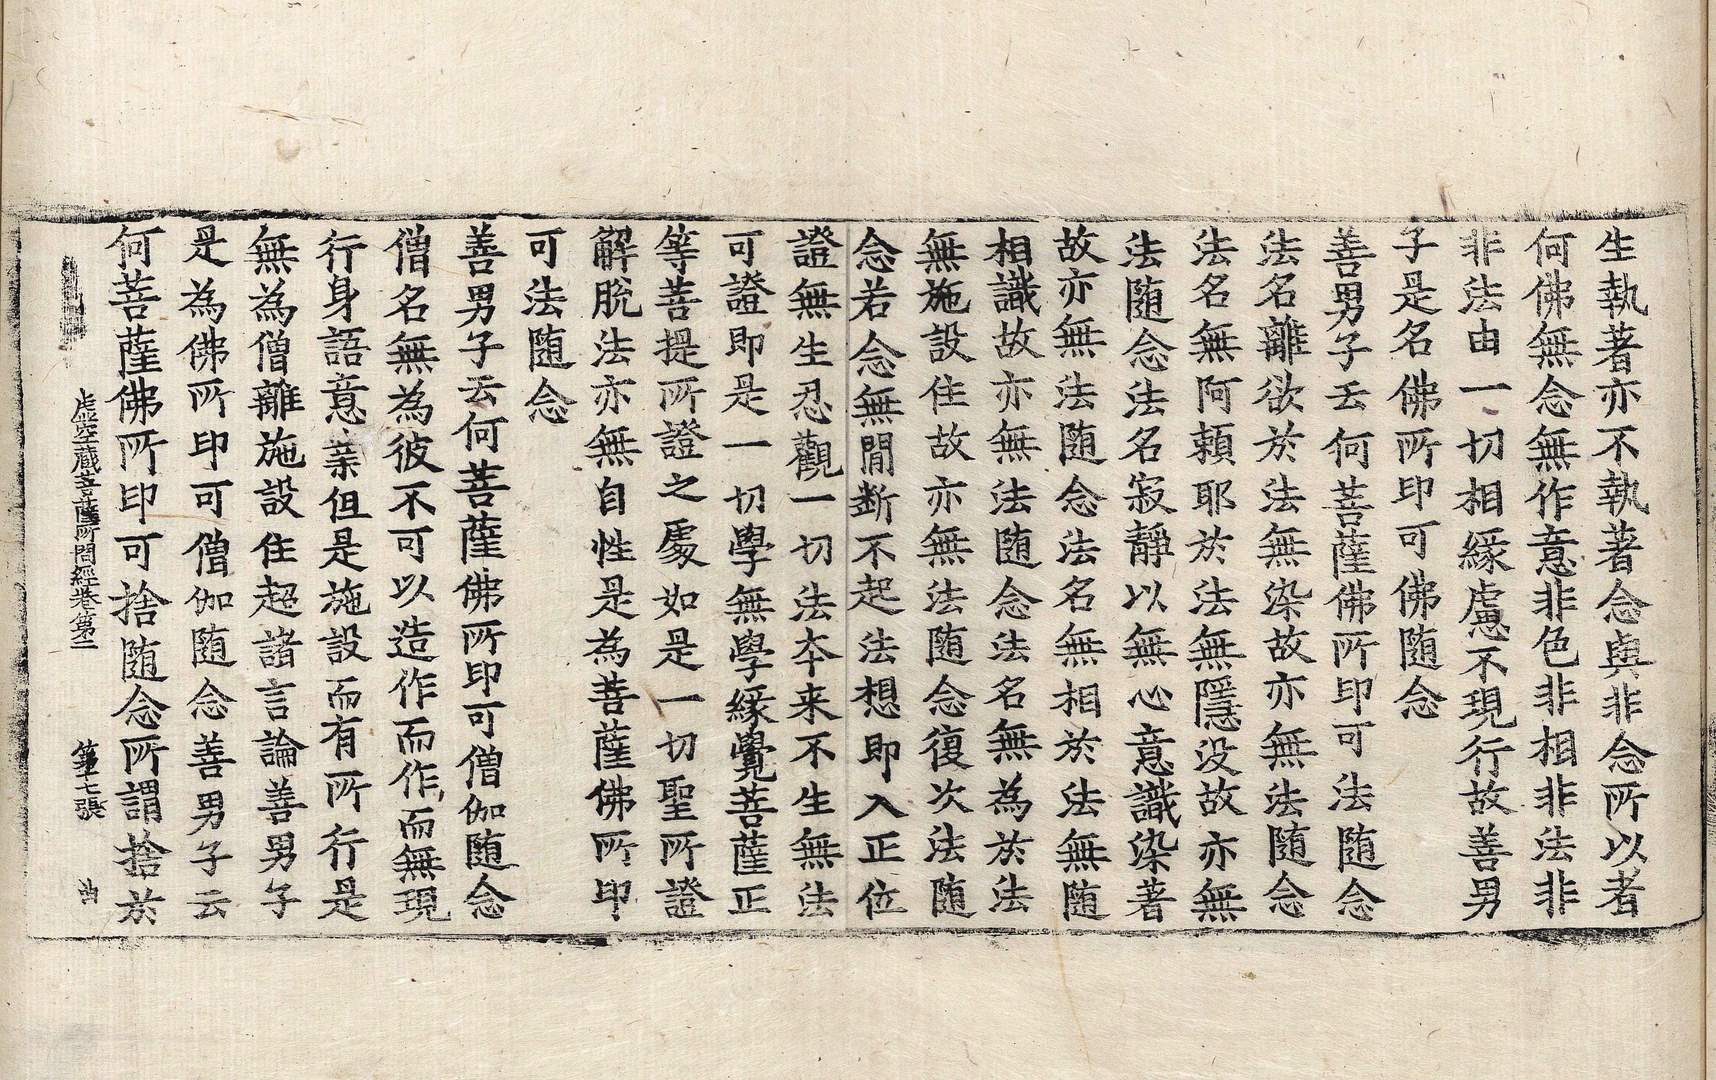 生執著亦不執著念與非念所以者
何佛無念無作意非色非相非法非
非法由一切相縁慮不現行故善男
子是名佛所印可佛随念
善男子云何菩薩佛所印可法随念
法名離欲於法無染故亦無法随念
法名無阿頼耶於法無隱没故亦無
法随念法名寂靜以無心意識染著
故亦無法随念法名無相於法無随
相識故亦無法随念法名無為於法
無施設住故亦無法随念復次法随
念若念無閒断不起法想即入正位
證無生忍觀一切法夲来不生無法
可證即是一切學無學縁覺菩薩正
等菩提所證之處如是一切聖所證
解脫法亦無自性是為菩薩佛所印
可法随念
善男子云何菩薩佛所印可僧伽随念
僧名無為彼不可以造作而作而無現
行身語意業但是施設而有所行是
無為僧離施設住超諸言論善男子
是為佛所印可僧伽随念善男子云
何菩薩佛所印可捨随念所謂捨於
虛空蔵菩薩所問經卷第二 第十七張